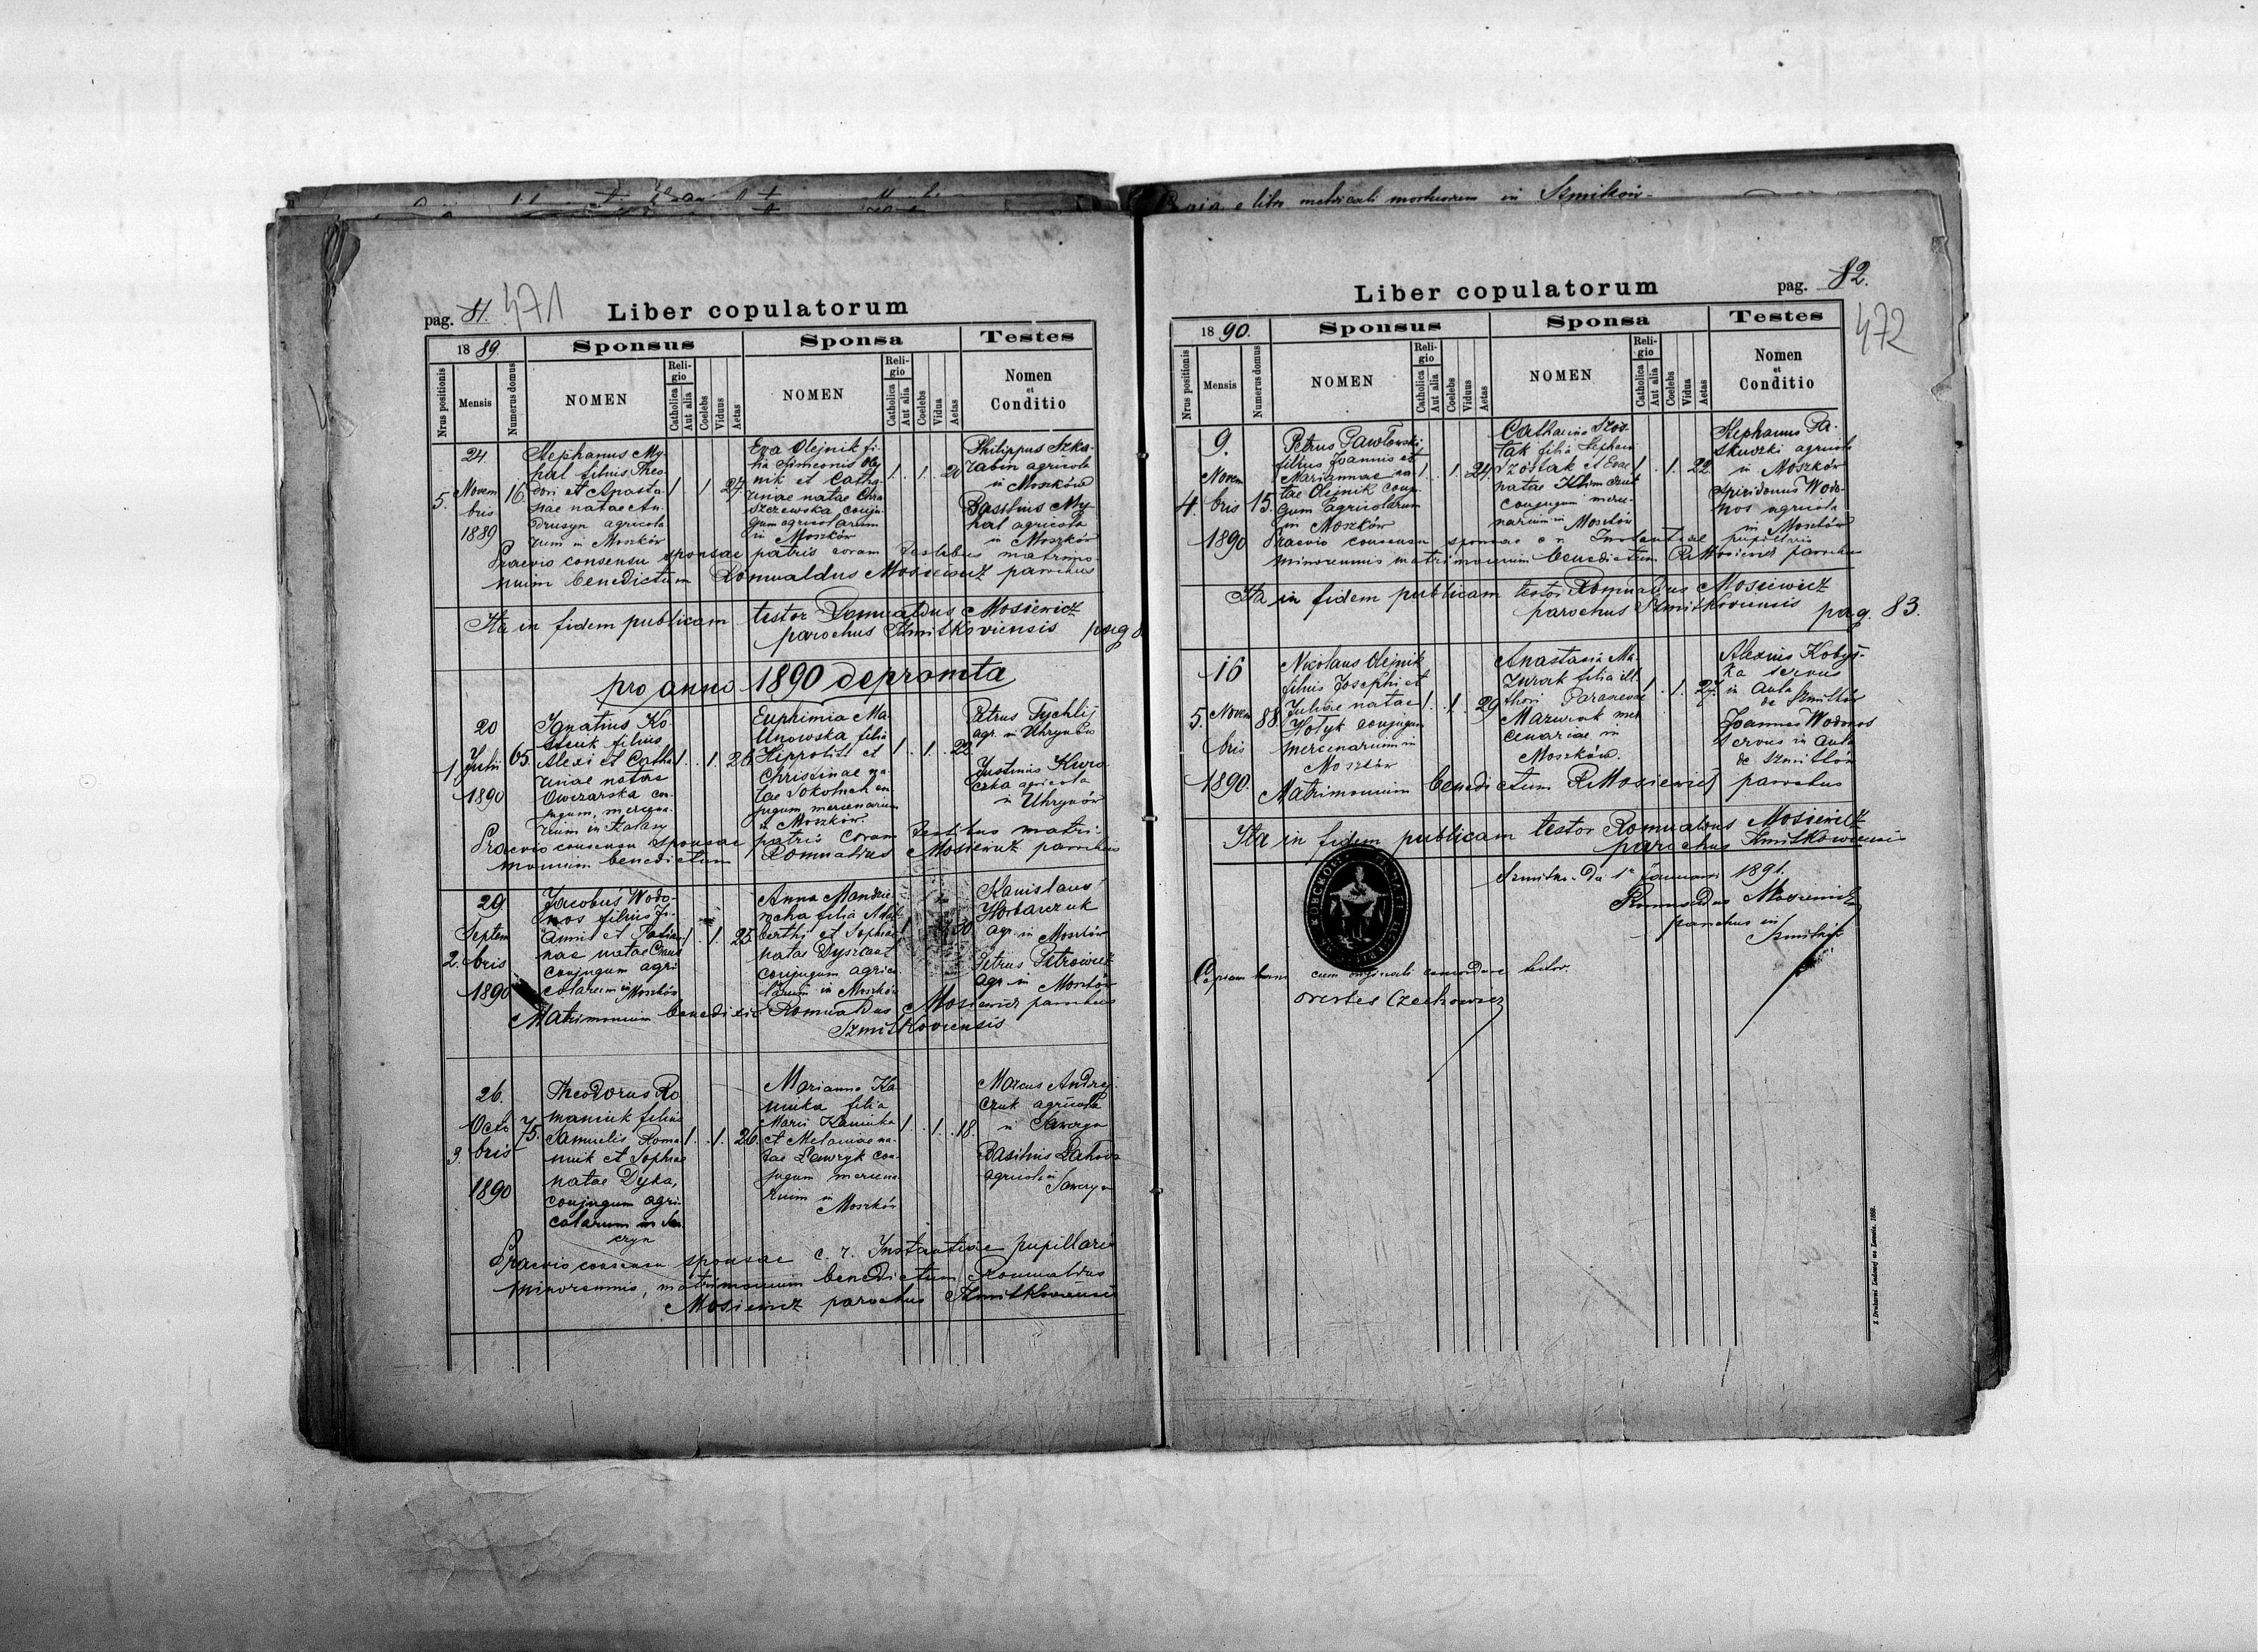 Copia e libro metricali mortuorum in Szmitków
pag. 81. 471
Liber copulatorum
1889
Sponsus
Sponsa
Testes
Nrus positionis
Mensis
Numerus domus
NOMEN
Religio
Catholica
Aut alia
Coelebs
Viduus
Aetas
NOMEN
Religio
Catholica
Aut alia
Coelebs
Vidua
Aetas
Nomen
et
Conditio
5.
24.
Novem
bris
1889
16
Stephanus My-
hal filius Theo-
dori et Anasta-
siae natae An-
drusyn agricola
rum in Moszków
1 . 1 27.
Eva Olejnik fi-
lia Simeonis Olej
nik et Catha-
rinae natae Chra
szczewska conju-
gum agricolarum
in Moszków
1. . 1. 20
Philippus Szka-
rabin agricola
in Moszków
Basilius My-
hal agricola
in Moszków
Praevio consensu sponsae patris coram testibus matrimo-
nium benedictum Romualdus Mosiewicz parochus
Ita in fidem publicam testor Romualdus Mosiewicz
parochus Szmitkoviensis pag
pro anno 1890 depromta
1.
20
Julii
1890
65.
Ignatius Ko-
filius
Alexi et Catha
rinae natae
Owczarska con-
jugum mercena-
rium in
1. . 1. 26.
Euphimia Ma-
linowska filia
Hippoliti et
Christinae na-
tae Sokolnik con
jugum mercenarium
in Moszków.
1 . 1. 22.
Petrus Tychlij
agr. in Uhrynów
Justinus Kuro
czka agricola
in Uhrynów
Praevio consensu sponsae patris coram testibus matri-
monium benedictum Romualdus Mosiewicz parochus
2.
29
Septem
bris
1890
Jacobus Wodo-
nos filius Jo-
annis et
nae natae
conjugum agri
colarum in Moszków
1. . 1. 25.
Anna Mandzie-
filia
berthi et Sophiae
natae Dyszkant
conjugum agrico
larum in Moszków
Stanislaus
Horbaczuk
agr. in Moszków
Petrus Petrowicz
agr. in Moszków
Matrimonium benedixit Romualdus Mosiewicz parochus
Szmitkoviensis
3.
26.
Octo
bris
1890
75.
Theodorus Ro
maniuk filius
Samuelis Roma
niuk et Sophiae
natae Dyka,
conjugum agri-
colarum in Sa-
wczyn
1. . 1. 26.
Marianna Ka
minka filia
Marii Kaminka
et Melaniae na-
tae Lawryk con-
jugum mercena-
rium in
Moszków
1. . 1. 18.
Marcus Andrej
czuk agricola
in Sawczyn
Basilius
agricola in
Sawczyn
Praevio consensu sponsae c. r. Instantiae pupillaris
minorennis, matrimonium benedictum Romualdus
Mosiewicz parochus Szmitkoviensis
Liber copulatorum
pag. 82.
472
1890.
Sponsus
Sponsa
Testes
Nrus positionis
Mensis
Numerus domus
NOMEN
Religio
Catholica
Aut alia
Coelebs
Viduus
Aetas
NOMEN
Religio
Catholica
Aut alia
Coelebs
Vidua
Aetas
Nomen
et
Conditio
4.
9.
Novem
bris
1890
15.
Petrus Pawłowski
filius Joannis et
Mariannae na-
tae Olejnik conju-
gum agricolarum
in Moszków
1. . 1. 24.
Catharina Szos-
tak filia Stephani
Szostak et Evae
natae Klimczuk
conjugum merce-
narium in Moszków
1 . 1. 22.
Stephanus Pa-
skuszki agricola
in Moszków
Spiridonus Wodo-
nos agricola
in Moszków
Praevio consensu sponsae c r. Instantiae pupillaris
minorennis matrimonium benedictum R. Mosiewicz parochus
Ita in fidem publicam testor Romualdus Mosiewicz
parochus Szmitkoviensis pag. 83.
5.
16
Novem
bris
1890.
88.
Nicolaus Olejnik
filius Josephi et
Juliae natae
Hołyk conjugum
mercenarium in
Moszków
1. . 1. 29
Anastasia Ma
zurak filia ill.
thori Parascevae
Mazurak mer
cenariae in
Moszków.
1. . 1. 27.
Alexius Kobyś-
ka servus
in Aula
de Szmitków
Joannes Wodonos
servus in aula
de Szmitków
Matrimonium benedictum R. Mosiewicz parochus
Ita in fidem publicam testor Romualdus Mosiewicz
parochus Szmitkowiensis
Szmitków Da 1a Januarii 1891.
Romualdus Mosiewicz
parochus in
Szmitków
Copiam hanc cum originali concordare testor.
Orestes Czechowicz
Z Drukarni Ludowej we Lwowie. 1888.